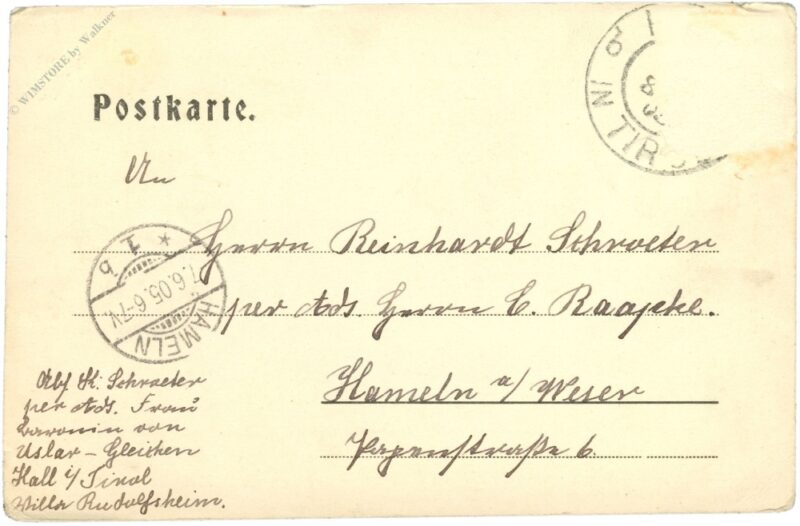 © WIMSTORE by Walkner
IN TIR
8
Postkarte.
An
Herrn Reinhardt Schroeter
per Ads. Herrn C. Raapke.
Hameln a/ Weser
Papenstraße 6.
HAMELN
7.6.05.6-7V
* 1 b
Abs. K. Schroeter
per Ads. Frau
Baronin von
Uslar-Gleichen
Hall i/ Tirol
Villa Rudolfsheim.